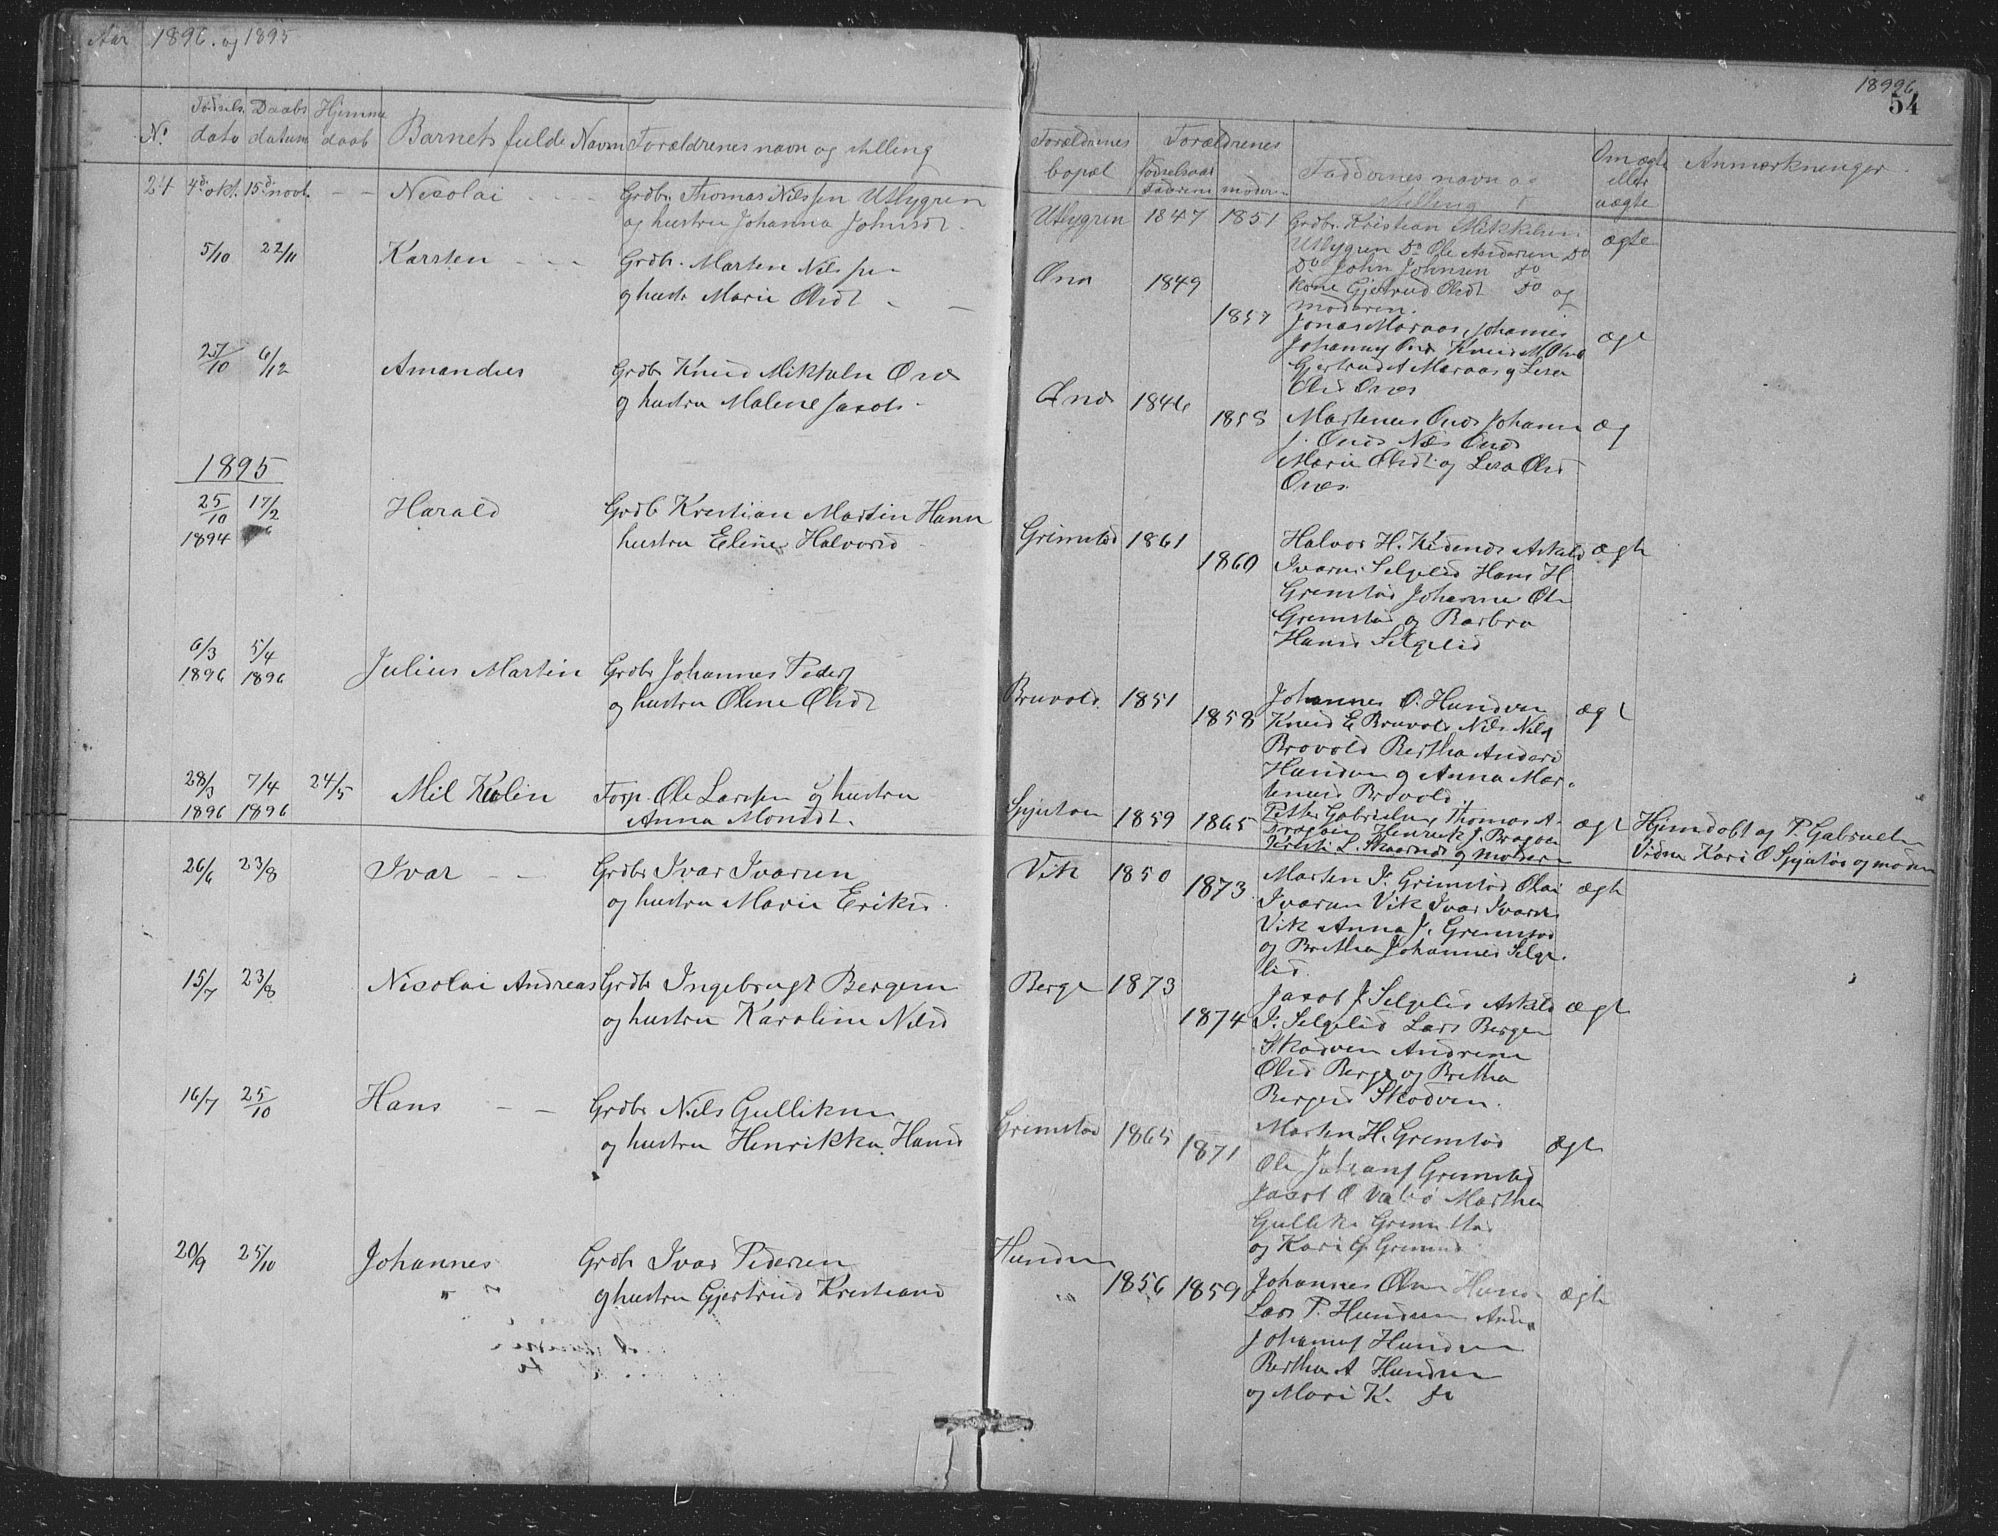 Aar 1896. og 1895
18996
54
No Fødsels dato Daabs datum Hjemme daab Barnets fulde Navn Forældrenes navn og stilling
Forældrenes bopæl Forældrenes fødselsaar faderen moder Faddernes navn og stilling Om ægte eller uægte Anmærkninger
24 4d okt. 15d novb. – – Nicolai – – – Grdbr Thomas Nilssen Utlygren
og hustru Johanna Johnsdt.
Utlygren 1847 1851 Grdbr. Kristian Mikkelsen ægte
Utlygren Do Ole Andersen Do
Do John Johnsen Do
kone Gjertrud Olsdt Do og
moderen.
5/10 22/11 Karsten – – – Grdb. Marten Nilssen
og hustr Marie Olsdt – –
Ønes 1849
1857 Jonas Maraas, Johannes ægt
Johannes Knud M.
Gjertrud A Maraas og Lisa
Olsd Ones
27/10 6/12 Amandus Grdbr Knud Mikkelsn Ones
og hustru Malene Jacobs.
1846
1858 Martenus Johann æg
J.
Marie Olsdt. og Lisa Olsd
Ones.
1895
25/10 1894 17/2 Harald Grdb Kristian Martin Hann
hustru Eline Halvorsd –
Grimstad 1861
1860 Halvor H. Askild ægte
Ivarsn Selgelid Hans H
Grimstad Johanne Ols
Grimstad og Barbra
Hansd Selgelid
6/3 1896 5/4 1896 Julius Martin Grdbr Johannes Peders
og hustru Oline Olsdt
Bruvold. 1851
1858 Johannes O. Hundven ægt
Knud E Bruvold, Nils Nils
Brovold Bertha Andersd
Hundven og Anna Mar-
tinusd Brovold.
28/3 1896 7/4 1896 24/5 Mil Kolin Forp. Ole Larssen og hustru
Anna Monsdt.
1859 1865 Petter Gabrielsen, Thomas A. ægt Hjemdøbt og P. Gabrielsen
Henrik J.
Kristi L. og moderen Vidne Kari O og moderen
26/6 23/8 Ivar – – Grdbr Ivar Ivarsen
og hustru Marie Eriksd.
Vik 1850
1873. Marten J. Grimstad Olai ægte
Ivarsen Vik Ivar Ivarsn
Vik Anna J. Grimstad
og Britha Johannesd Selge-
lid.
15/7 23/8 Nicolai Andreas Grdbr Ingebrugt Bergesen
og hustru Karoline Nilsd
Berge 1873
1874 Jacob J Selgelid Askild ægt
I. Selgelid Lars Bergen
Skodven Andrine
Olsd Berge og Britha
Bergesd Skodven.
16/7 25/10 Hans – – Grdbr Nils Gulliksen
og hustru Henrikka Hansd
Grimstad 1865
1871 Marten H. Grimstad ægte
Ole Johans Grimstad
Jacob O Martha
Gulliks Grimstad
og Kari G. Grimst
20/9 25/10 Johannes " Grdb Ivar Pedersen
og hustru Gjertrud Kristiansd
Hundven " 1856 1859 Johannes Olsen ægte
Lars P. Hundven
Johannes Hundven
Bertha A Hundven
og Mari K. Do